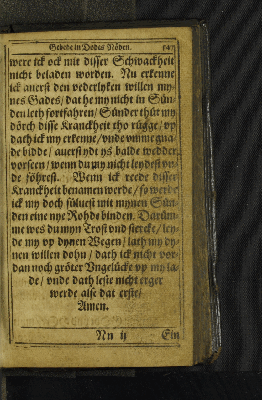 Gebede in Dodes Nöden.
were ick ock mit disser Schwackheit
nicht beladen worden. Nu erkenne
ick auerst den vederlyken willen my-
nes Gades / dat he my nicht in Sün-
den leth fortfahren / Sünder thüt my
dörch disse Kranckheit tho rügge / vp
dath ick my erkenne / vnde vmme gna-
de bidde / auerst ydt ys balde wedder
vorseen / wenn du my nicht leydest vn-
de föhrest. Wenn ick reede disser
Kranckheit benamen werde / so werde
ick my doch süluest mit mynen Sün-
den eine nye Rohde binden. Darüm-
me wes du myn Trost vnd stercke / ley-
de my vp dynen Wegen / lath my dy-
nen willen dohn / dath ick nicht vor-
dan noch gröter Vngelücke vp my la-
de / vnde dath leste nicht erger
werde alse dat erste /
Amen.
Nn ij Ein